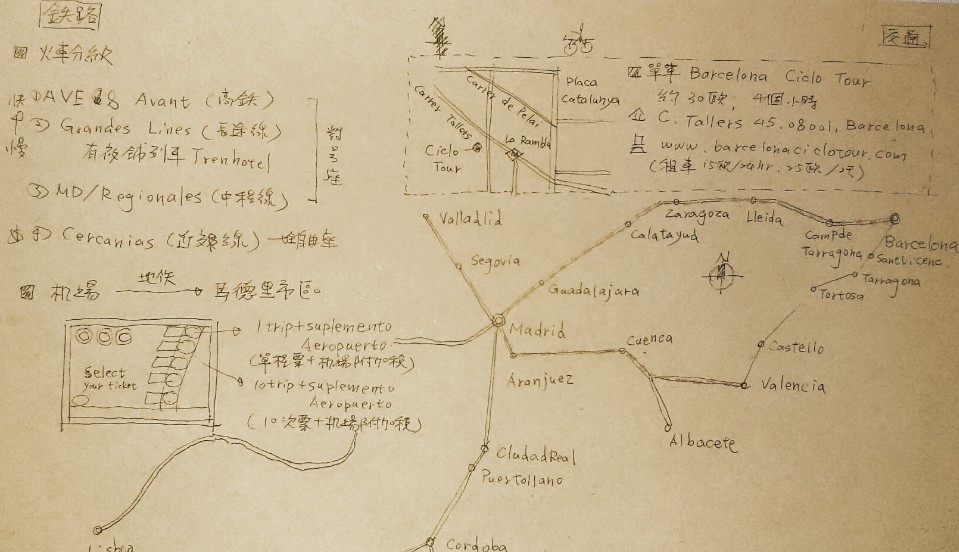 鉄路
火車分級
快 ① AVE & Avant (高鉄)
中 ② Grandes Lines (長途線)
慢 有夜舖列車 Trenhotel
③ MD/Regionales (中程線)
④ Cercanias (近郊線) 自由座
對号座
机場 地鉄 馬德里市區
Select
your ticket
1 trip + suplemento
Aeropuerto
(單程票+机場附加税)
10 trip + suplemento
Aeropuerto
(10次票+机場附加税)
交通
Carrer de Pelai
Carrer Tallers
Placa
Catalunya
La Rambla
Ciclo
Tour
單車 Barcelona Ciclo Tour
約30欧, 4個小時
C. Tallers 45. 08001, Barcelona
www.barcelonaciclotour.com
(租車15欧/24hr, 25欧/2天)
Valladlid
Segovia
Guadalajara
Calatayud
Zaragoza
Lleida
Campde
Tarragona
Barcelona
Santvicenc
Tarragona
Tortosa
N
Madrid
Aranjuez
Cuenca
Castello
Valencia
Albacete
CiudadReal
Puertollano
Cordoba
Lisboa